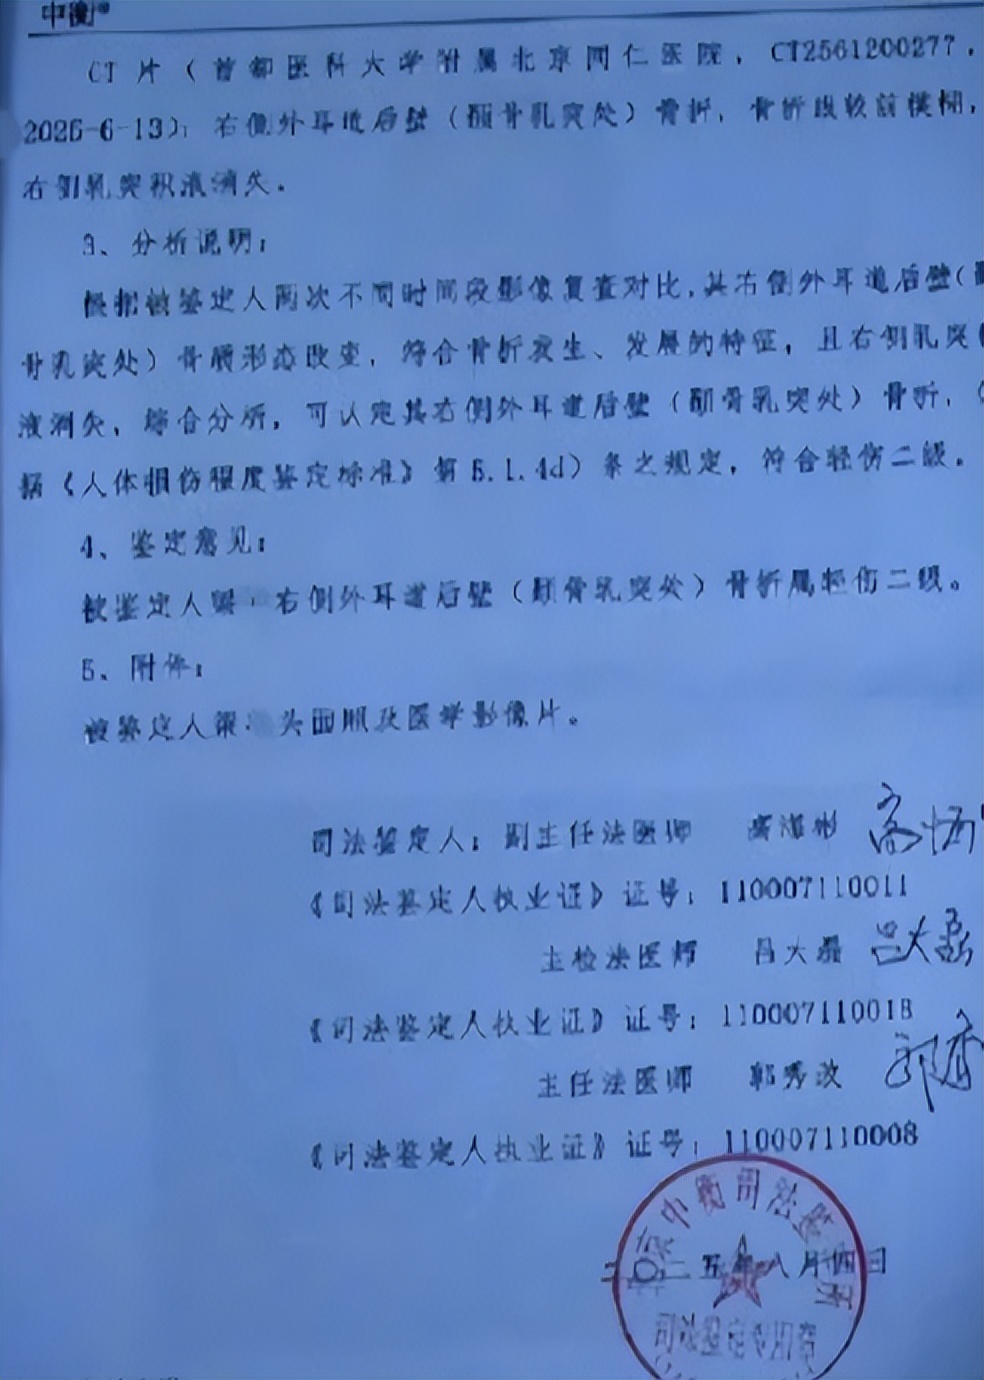 中衡
CT片（首都医科大学附属北京同仁医院，CT2561200277，
2025-6-13）：右侧外耳道后壁（颞骨乳突处）骨折，骨折线较前模糊，
右侧乳突积液消失。
3、分析说明：
根据被鉴定人两次不同时间段影像复查对比，其右侧外耳道后壁（
骨乳突处）骨质形态改变，符合骨折发生、发展的特征，且右侧乳突
液消失，综合分析，可认定其右侧外耳道后壁（颞骨乳突处）骨折，
据《人体损伤程度鉴定标准》第5.1.4d）条之规定，符合轻伤二级。
4、鉴定意见：
被鉴定人 右侧外耳道后壁（颞骨乳突处）骨折属轻伤二级。
5、附件：
被鉴定人 头面照及医学影像片。
司法鉴定人：副主任法医师 高
《司法鉴定人执业证》证号：110007110011
主检法医师 吕大磊 吕大磊
《司法鉴定人执业证》证号：110007110018
主任法医师 郭秀波 郭秀
《司法鉴定人执业证》证号：110007110008
北京中衡司法鉴定所
二〇二五年八月四日
司法鉴定专用章